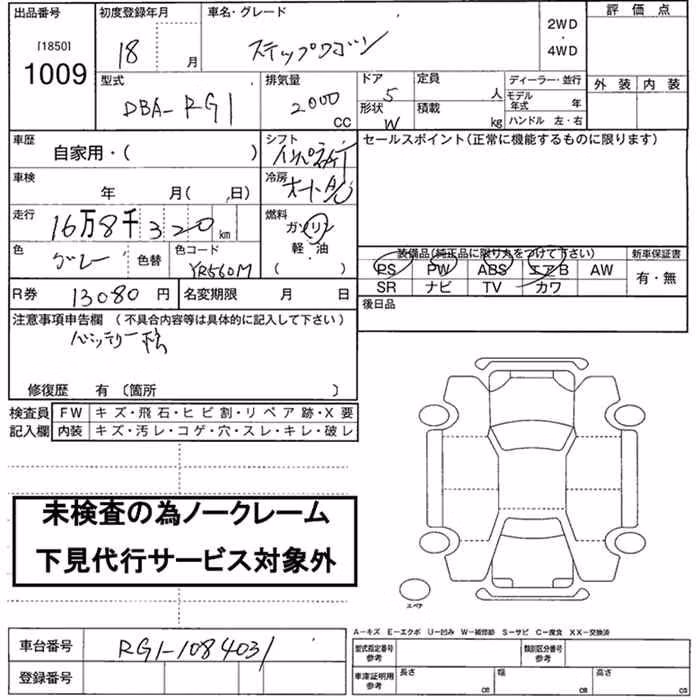 出品番号 初度登録年月 車名・グレード 評価点
[1850] 1009 18 月 ステップワゴン 2WD ・ 4WD
型式 DBA-RG1 排気量 2000 CC ドア 5 定員 人 ディーラー・並行 外装 内装
形状 W 積載 kg モデル年式 年
ハンドル 左・右
車歴 自家用・( ) シフト セールスポイント(正常に機能するものに限ります)
車検 年 月( 、日) 冷房 オートA/C
走行 16万8千320km 燃料 ガソリン
軽・油
( )
色 グレー 色替 色コード YR560M 装備品(純正品に限り丸をつけて下さい) 新車保証書
PS PW ABS エアB AW 有・無
SR ナビ TV カワ
R券 13080円 名変期限 月 日 後日品
注意事項申告欄(不具合内容等は具体的に記入して下さい)
バッテリー
修復歴 有〔箇所 〕
検査員 FW キズ・飛石・ヒビ割・リペア跡・X要
記入欄 内装 キズ・汚レ・コゲ・穴・スレ・キレ・破レ
未検査の為ノークレーム
下見代行サービス対象外
スペア
A−キズ E−エクボ U−凹み W−補修跡 S−サビ C−腐食 XX−交換済
車台番号 RG1-1084031 型式指定番号 参考 類別区分番号 参考
登録番号 車庫証明用 参考 長さ cm 幅 cm 高さ cm